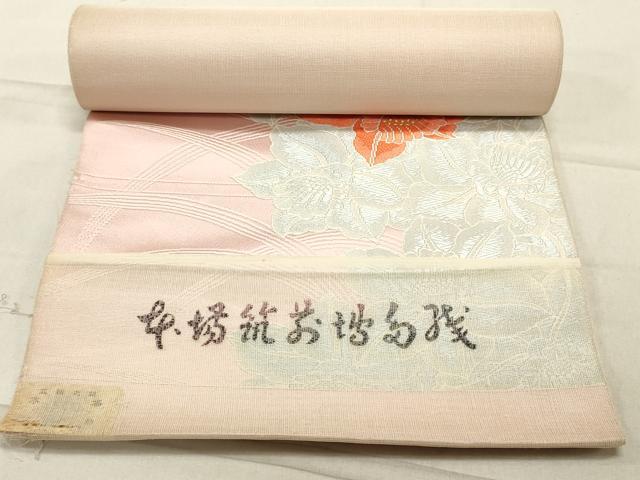 本場筑前博多織